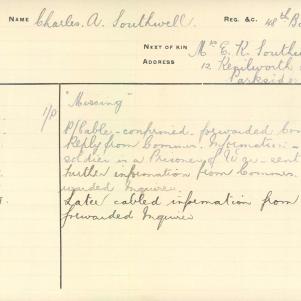 NAME Charles. A. Southwell. REG. &C. 48th
NEXT OF KIN Mrs E. K.
ADDRESS 12 Kenilworth
Parkside
"Missing"
1/P
P/Cable confirmed. forwarded
Reply from Commrs. Information
soldier is a Prisoner of War sent
further information from Commrs.
warded Inquirer.
Later cabled information from
forwarded Inquirer